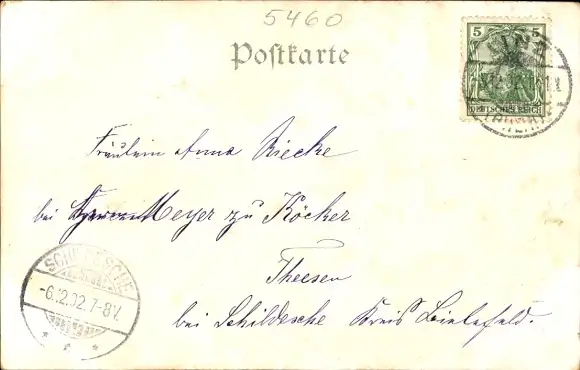 5460
Postkarte
5 5
DEUTSCHES REICH
Fräulein Anna Riecke
bei Meyer zu Köcker
Theesen
bei Schildesche Kreis Bielefeld.
SCHILDESCHE
-6.12.02.7-8V.